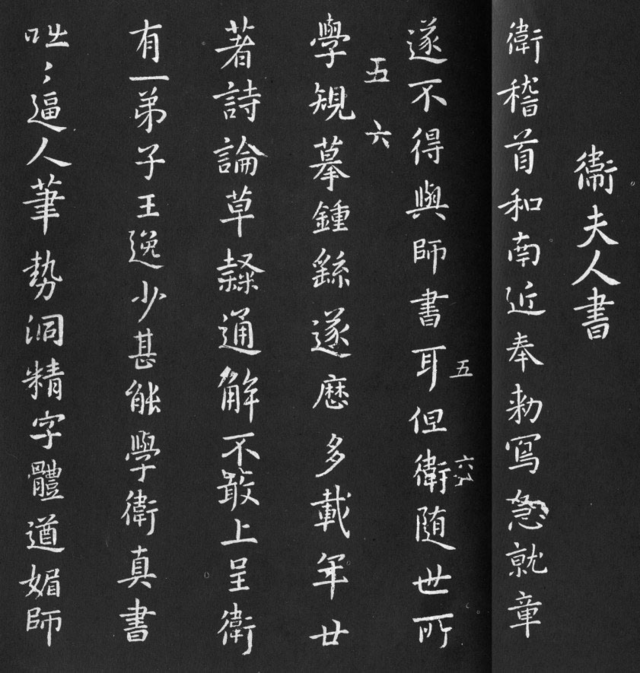 衛夫人書
衛稽首和南近奉勑寫急就章
遂不得與師書耳但衛随世所
學規摹鍾繇遂歷多載年廿
著詩論草隸通解不敢上呈衛
有一弟子王逸少甚能學衛真書
咄〻逼人筆勢洞精字體遒媚師
五
六
五
六